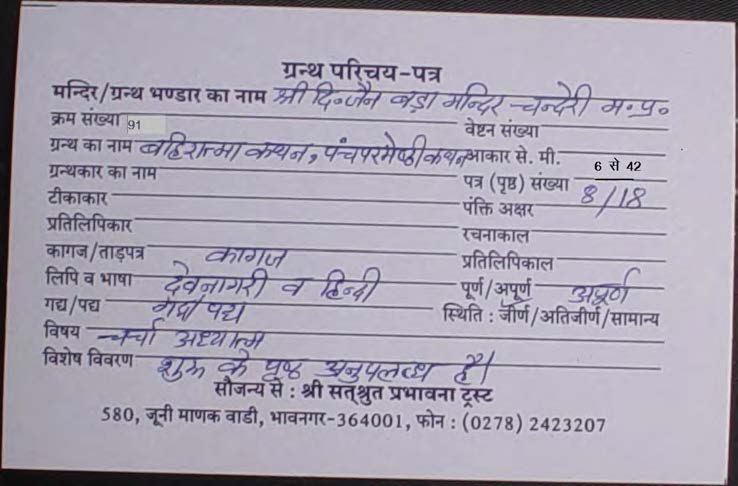 ग्रन्थ परिचय-पत्र
मन्दिर/ग्रन्थ भण्डार का नाम श्री दि॰जैन बड़ा मन्दिर चन्देरी म.प्र.
क्रम संख्या 91 वेष्टन संख्या
ग्रन्थ का नाम बहिरात्मा कथन, पंचपरमेष्ठी कथन आकार से. मी. 6 से 42
ग्रन्थकार का नाम पत्र (पृष्ठ) संख्या 8/18
टीकाकार पंक्ति अक्षर
प्रतिलिपिकार रचनाकाल
कागज/ताड़पत्र कागज प्रतिलिपिकाल
लिपि व भाषा देवनागरी व हिन्दी पूर्ण/अपूर्ण अपूर्ण
गद्य/पद्य गद्य पद्य स्थिति : जीर्ण/अतिजीर्ण/सामान्य
विषय चर्चा अध्यात्म
विशेष विवरण शुरू के पृष्ठ अनुपलब्ध है।
सौजन्य से : श्री सत्श्रुत प्रभावना ट्रस्ट
580, जूनी माणक वाडी, भावनगर-364001, फोन : (0278) 2423207